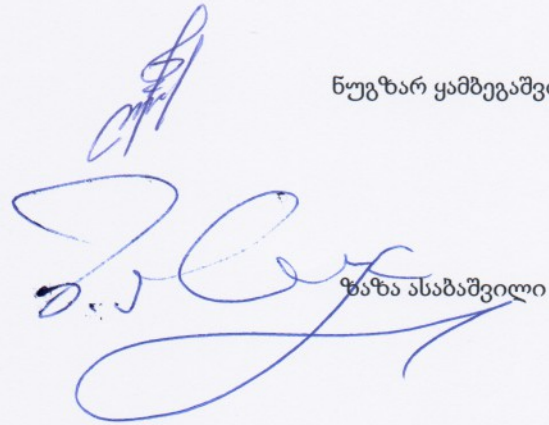 ნუგზარ ყამბეგაშვი
ზაზა ასაბაშვილი